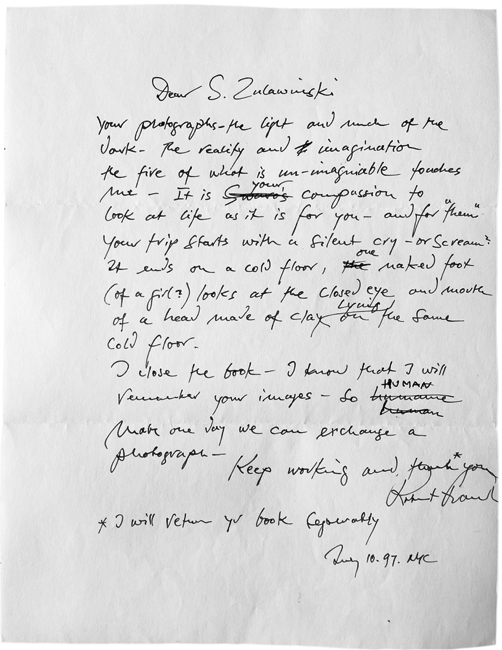 Dear S. Zulawinski
Your photographs – the light and much of the
dark – the reality and imagination
the fire of what is un-imaginable touches
me – It is your compassion to
look at life as it is for you – and for "them"
Your trip starts with a silent cry – or scream?
It ends on a cold floor, one naked foot
(of a girl?) looks at the closed eye and mouth
of a head made of clay lying on the same
cold floor.
I close the book – I know that I will
remember your images – so HUMAN
Maybe one day we can exchange a
photograph –
Keep working and thank* you
Robert Frank
* I will return yr book separately
10.97. NYC